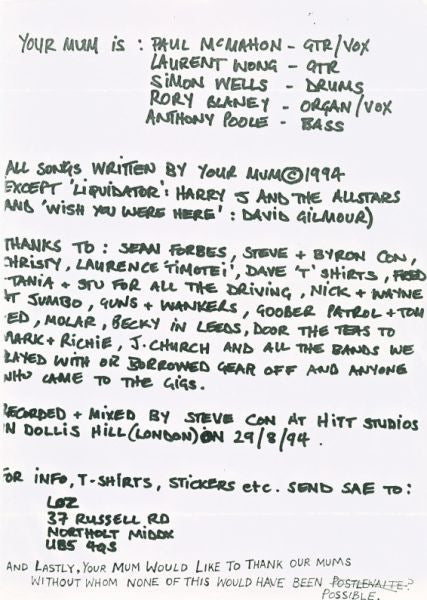 YOUR MUM IS : PAUL McMAHON - GTR/VOX
LAURENT WONG - GTR
SIMON WELLS - DRUMS
RORY BLANEY - ORGAN/VOX
ANTHONY POOLE - BASS
ALL SONGS WRITTEN BY YOUR MUM © 1994
EXCEPT 'LIQUIDATOR': HARRY J AND THE ALLSTARS
AND 'WISH YOU WERE HERE' : DAVID GILMOUR)
THANKS TO : SEAN FORBES, STEVE + BYRON CON,
CHRISTY, LAURENCE 'TIMOTEI', DAVE 'T' SHIRTS, FRED
TANIA + STU FOR ALL THE DRIVING, NICK + WAYNE
AT JUMBO, GUNS + WANKERS, GOOBER PATROL + TOM
ED, MOLAR, BECKY IN LEEDS, DOOR THE TEAS TO
MARK + RICHIE, J. CHURCH AND ALL THE BANDS WE
PLAYED WITH OR BORROWED GEAR OFF AND ANYONE
WHO CAME TO THE GIGS.
RECORDED + MIXED BY STEVE CON AT HITT STUDIOS
IN DOLLIS HILL (LONDON) ON 29/8/94.
FOR INFO, T-SHIRTS, STICKERS etc. SEND SAE TO:
LOZ
37 RUSSELL RD
NORTHOLT MIDDX
UB5 4QS
AND LASTLY, YOUR MUM WOULD LIKE TO THANK OUR MUMS
WITHOUT WHOM NONE OF THIS WOULD HAVE BEEN
POSSIBLE.